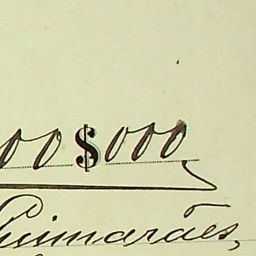 00$000
Guimarães,